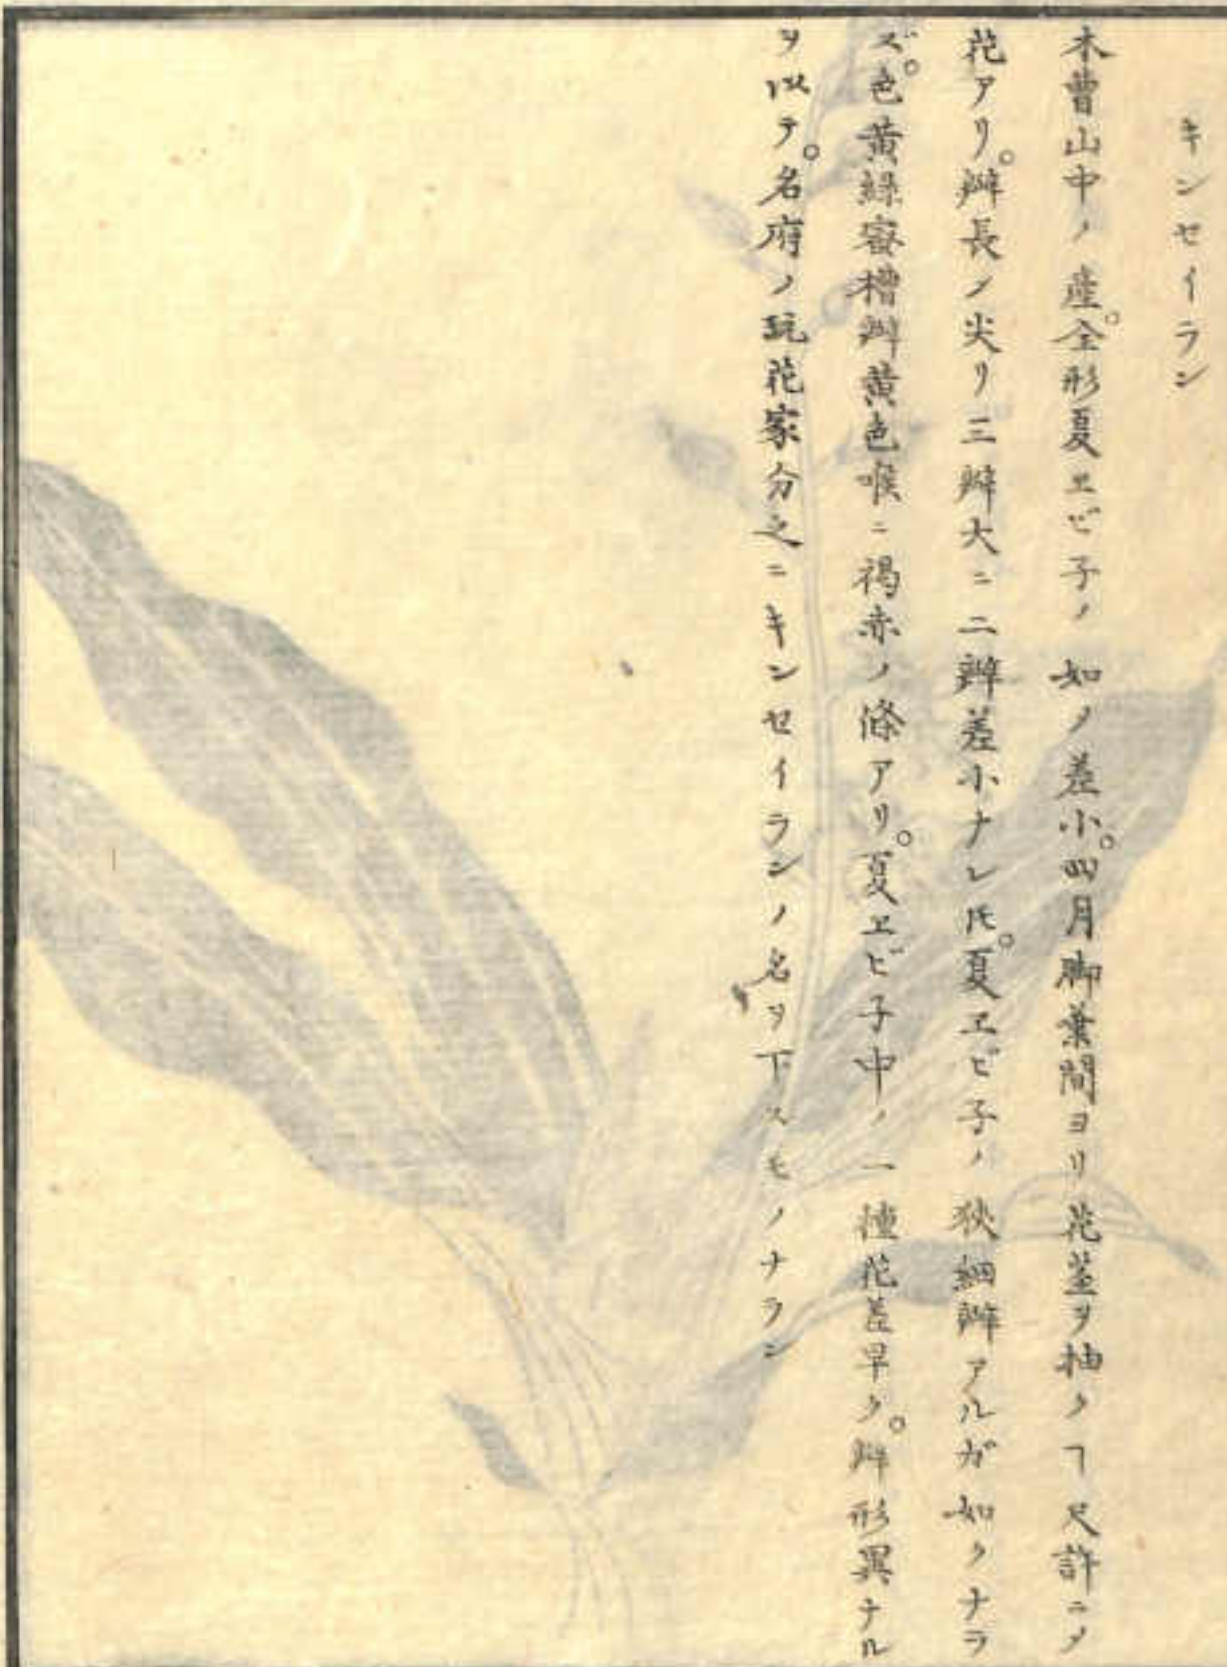 キンセイラン
木曹山中ノ産。全形夏ヱビ子ノ如ク差小。四月脚葉間ヨリ花莖ヲ抽クヿ尺許ニ〆
花アリ。瓣長ク尖リ三瓣大ニ二瓣差小ナレ𪜈。夏ヱビ子ノ狹細瓣アルガ如クナラ
ズ。色黄緑蜜槽瓣黄色喉ニ褐赤ノ條アリ。夏ヱビ子中ノ一種花差早ク。瓣形異ナル
ヲ以テ。名府ノ玩花家分之ニキンセイランノ名ヲ下スモノナラン